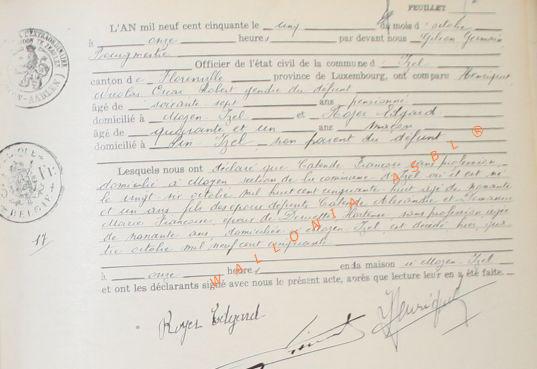 FEUILLET
L'AN mil neuf cent cinquante le cinq du mois d' octobre
à onze heures par devant nous Ghilain Germain
Officier de l'état civil de la commune d' Izel
canton de Florenville province de Luxembourg, ont comparu Henriquet
Nicolas Oscar Robert gendre du défunt
âgé de soixante sept ans pensionné
domicilié à Moyen Izel et Royer Edgard
âgé de quarante et un ans
domicilié à Pin Izel non parent du défunt
Lesquels nous ont déclaré que Catende François sans profession
domicilié à Moyen section de la commune d'Izel où il est né
le vingt six octobre mil huit cent cinquante huit âgé de nonante
et un ans fils des époux défunts Catende Alexandre et
Marie Françoise époux de Hortense sans profession âgée
de nonante ans domiciliée à Moyen Izel est décédé hier
octobre mil neuf cent cinquante
à onze heures en sa maison à Moyen Izel
et ont les déclarants signé avec nous le présent acte, après que lecture leur en a été faite.
17
Royer Edgard
Henriquet
WALLONIA ASBL ®